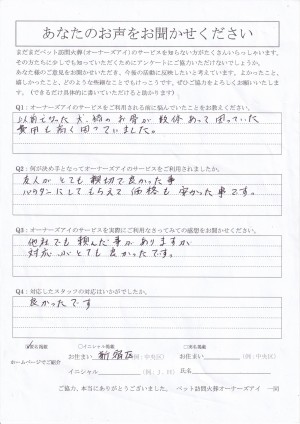 あなたのお声をお聞かせください
まだまだペット訪問火葬(オーナーズアイ)のサービスを知らない方がたくさんいらっしゃいます。
その方たちに少しでも知っていただくためにアンケートにご協力いただけないでしょうか。
あなた様のご意見をお聞かせいただき、今後の活動に反映したいと考えています。よかったこと、
嬉しかったこと、どのような些細なことでもけっこうです。ぜひご協力をよろしくお願いします。
(できるだけ具体的に書いていただけると助かります)
Q1:オーナーズアイのサービスをご利用される前に悩んでいたことをお教えください。
以前亡なった犬、猫のお骨が数体あって困っていた
費用も高く困っていました。
Q2:何が決め手となってオーナーズアイのサービスをご利用されましたか。
友人がとても親切で良かった事
パウダーにしてもらえて価格も安かった事です。
Q3:オーナーズアイのサービスを実際にご利用なさってみての感想をお聞かせください。
他社でも頼んだ事がありますが
対応がとても良かったです。
Q4:対応したスタッフの対応はいかがでしたか。
良かったです
ホームページでご紹介
□匿名掲載
□イニシャル掲載
□実名掲載
お住まい 新宿区(例:中央区)
お住まい(例:中央区)
イニシャル(例:J.H)
氏名
ご協力、本当にありがとうございました。 ペット訪問火葬オーナーズアイ 一同